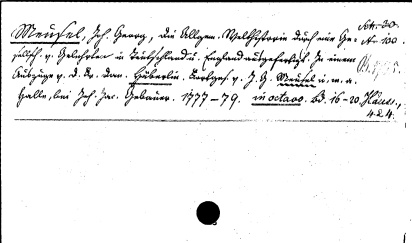 Abt. 20.
Meusel, Joh. Georg, Die Allgem. Welthistorie durch eine Ge- A. 100.
sellsch. v. Gelehrten in Teutschland u. England ausgefertigt. In einem
Auszuge v. d. Hr. Dan. Häberlin. Fortges. v. J. G. Meusel u. w. a.
Halle, bei Joh. Jac. Gebauer. 1777-79. in octavo. Bd. 16-20 Häuss.,
4. 24.